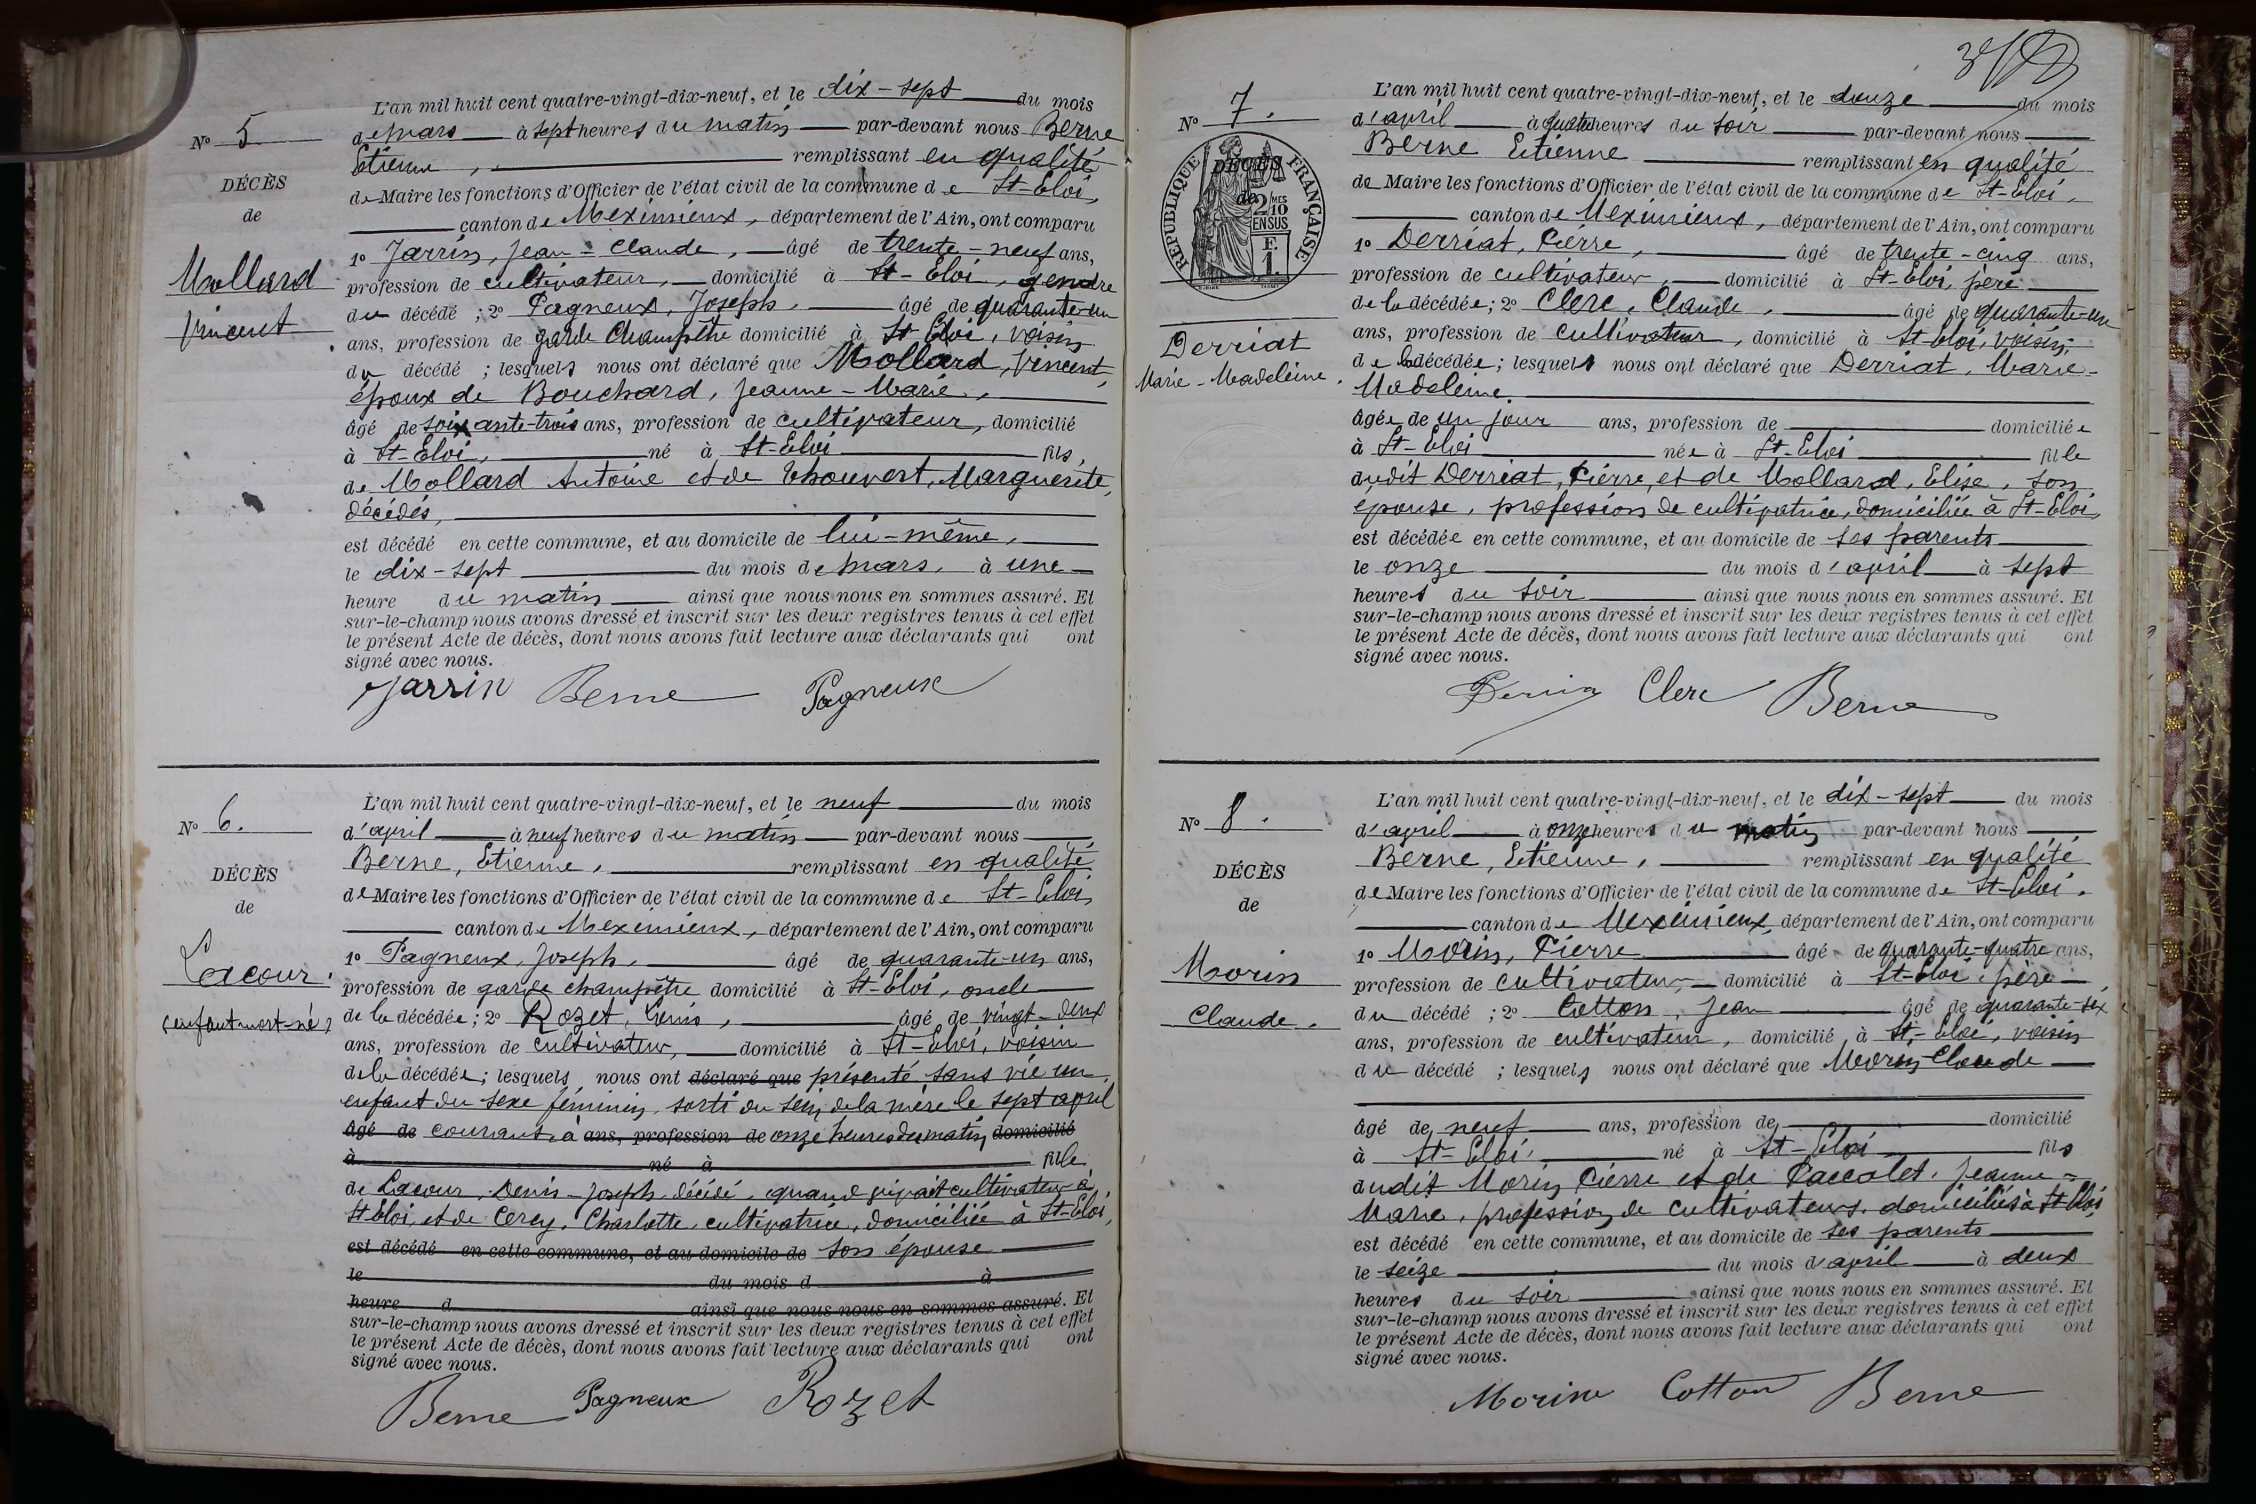 L'an mil huit cent quatre-vingt-dix-neuf, et le dix-sept du mois
de mars à sept heures du matin par-devant nous Berne
Etienne, remplissant en qualité
de Maire les fonctions d'Officier de l'état civil de la commune de St-Eloi,
canton de Meximieux, département de l'Ain, ont comparu
1º Jarrin, Jean-Claude, âgé de trente-neuf ans,
profession de cultivateur, domicilié à St-Eloi, gendre
du décédé ; 2º Pagneux, Joseph, âgé de quarante-un
ans, profession de garde champêtre domicilié à St Eloi, voisin
du décédé ; lesquels nous ont déclaré que Mollard, Vincent,
époux de Bouchard, Jeanne-Marie,
âgé de soixante-trois ans, profession de cultivateur, domicilié
à St-Eloi, né à St-Eloi fils,
de Mollard Antoine et de Thouvert, Marguerite,
décédés,
est décédé en cette commune, et au domicile de lui-même,
le dix-sept du mois de mars, à une
heure du matin ainsi que nous nous en sommes assuré. Et
sur-le-champ nous avons dressé et inscrit sur les deux registres tenus à cet effet
le présent Acte de décès, dont nous avons fait lecture aux déclarants qui ont
signé avec nous.
Jarrin Berne Pagneux
Nº 5
DÉCÈS
de
Mollard
Vincent
Nº 6.
DÉCÈS
de
Lacour.
(enfant mort-né)
L'an mil huit cent quatre-vingt-dix-neuf, et le neuf du mois
d'april à neuf heures du matin par-devant nous
Berne, Etienne, remplissant en qualité
de Maire les fonctions d'Officier de l'état civil de la commune de St-Eloi,
canton de Meximieux, département de l'Ain, ont comparu
1º Pagneux, Joseph, âgé de quarante-un ans,
profession de garde champêtre domicilié à St-Eloi, oncle
de la décédée ; 2º Rozet, Denis, âgé de vingt-deux
ans, profession de cultivateur, domicilié à St-Eloi, voisin
de la décédée ; lesquels nous ont déclaré que présenté sans vie un
enfant du sexe féminin, sorti du sein de la mère le sept april
âgé de courant, à ans, profession de onze heures du matin domicilié
à né à fille
de Lacour, Denis-Joseph décédé, quand vivait cultivateur à
St Eloi, et de Cerey, Charlotte, cultivatrice, domiciliée à St-Eloi,
est décédé en cette commune, et au domicile de son épouse
le du mois d à
heure d ainsi que nous nous en sommes assuré. Et
sur-le-champ nous avons dressé et inscrit sur les deux registres tenus à cet effet
le présent Acte de décès, dont nous avons fait lecture aux déclarants qui ont
signé avec nous.
Berne Pagneux Rozet
Nº 7.
RÉPUBLIQUE FRANÇAISE
DÉCÈS
de
2/10 MES
EN SUS
F.
1.
Derriat
Marie-Madeleine.
L'an mil huit cent quatre-vingt-dix-neuf, et le douze du mois
d'april à quatre heures du soir par-devant nous
Berne Etienne remplissant en qualité
de Maire les fonctions d'Officier de l'état civil de la commune de St-Eloi,
canton de Meximieux, département de l'Ain, ont comparu
1º Derriat, Pierre, âgé de trente-cinq ans,
profession de cultivateur, domicilié à St-Eloi, père
de la décédée ; 2º Clerc, Claude, âgé de quarante-un
ans, profession de cultivateur, domicilié à St-Eloi, voisin,
de la décédée ; lesquels nous ont déclaré que Derriat, Marie-
Madeleine,
âgée de un jour ans, profession de domiciliée
à St-Eloi née à St-Eloi fille
dudit Derriat, Pierre, et de Mollard, Elise, son
épouse, profession de cultivatrice, domiciliée à St-Eloi,
est décédée en cette commune, et au domicile de ses parents
le onze du mois d'april à sept
heures du soir ainsi que nous nous en sommes assuré. Et
sur-le-champ nous avons dressé et inscrit sur les deux registres tenus à cet effet
le présent Acte de décès, dont nous avons fait lecture aux déclarants qui ont
signé avec nous.
Clerc Berne
Nº 8.
DÉCÈS
de
Morin
Claude.
L'an mil huit cent quatre-vingt-dix-neuf, et le dix-sept du mois
d'april à onze heures du matin par-devant nous
Berne, Etienne, remplissant en qualité
de Maire les fonctions d'Officier de l'état civil de la commune de St-Eloi.
canton de Meximieux, département de l'Ain, ont comparu
1º Morin, Pierre âgé de quarante-quatre ans,
profession de cultivateur, domicilié à St-Eloi, père
du décédé ; 2º Cotton, Jean âgé de quarante-six
ans, profession de cultivateur, domicilié à St-Eloi, voisin
du décédé ; lesquels nous ont déclaré que Morin, Claude
âgé de neuf ans, profession de domicilié
à St-Eloi, né à St-Eloi fils
dudit Morin Pierre et de Paccalet, Jeanne-
Marie, profession de cultivateurs, domiciliés à St Eloi
est décédé en cette commune, et au domicile de ses parents
le seize du mois d'april à deux
heures du soir ainsi que nous nous en sommes assuré. Et
sur-le-champ nous avons dressé et inscrit sur les deux registres tenus à cet effet
le présent Acte de décès, dont nous avons fait lecture aux déclarants qui ont
signé avec nous.
Morin Cotton Berne